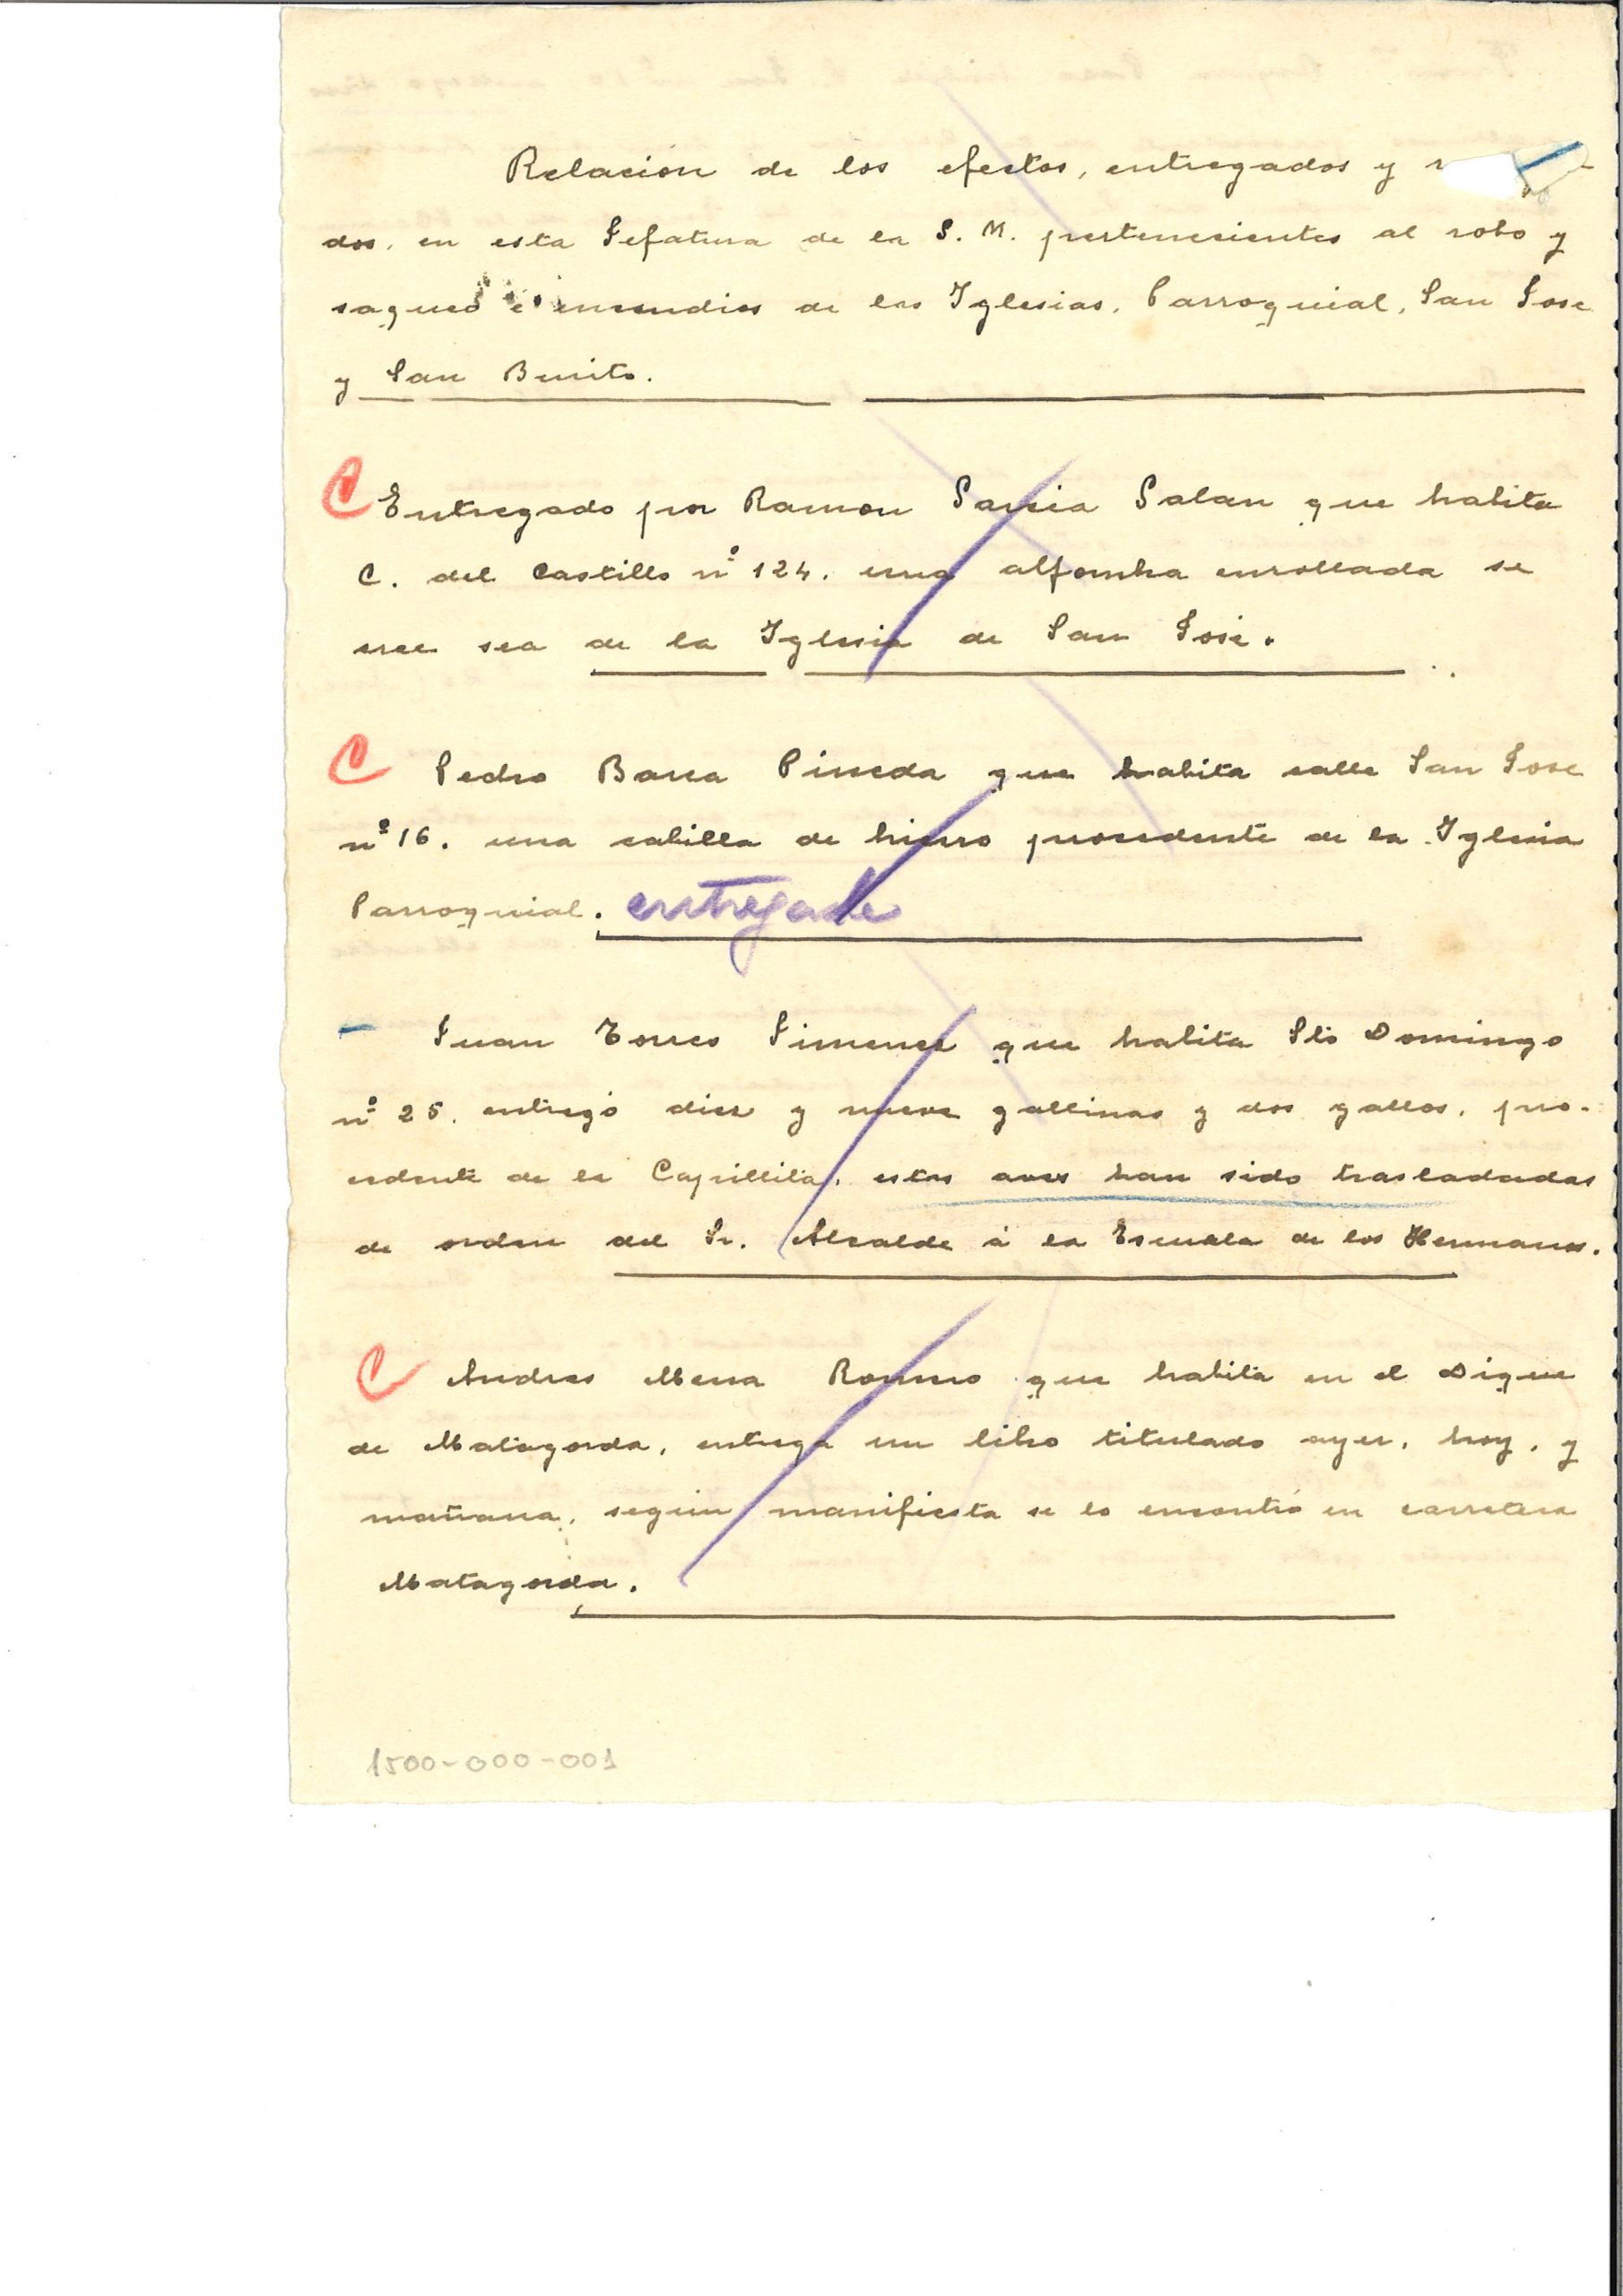 Relación de los efectos, entregados y
dos, en esta Jefatura de la G. M. pertenecientes al robo y
saqueo e incendios de las Iglesias, Parroquial, San Jose
y San Benito.
C Entregado por Ramon Garcia Galan que habita
C. del Castillo nº 124. una alfombra enrollada se
cree sea de la Iglesia de San José.
C Pedro Barea Pineda que habita calle San Jose
nº 16. una cabilla de hierro procedente de la Iglesia
Parroquial. entregada
Juan Torres Jimenez que habita Sto Domingo
nº 25. entregó diez y nueve gallinas y dos gallos. pro-
cedente de la Capillita, estas aves han sido trasladadas
de orden del Sr. Alcalde á la Escuela de los Hermanos.
C Andres Mena Romero que habita en el Dique
de Matagorda, entrega un libro titulado ayer, hoy, y
mañana, según manifiesta se lo encontró en carretera
Matagorda.
1500-000-001